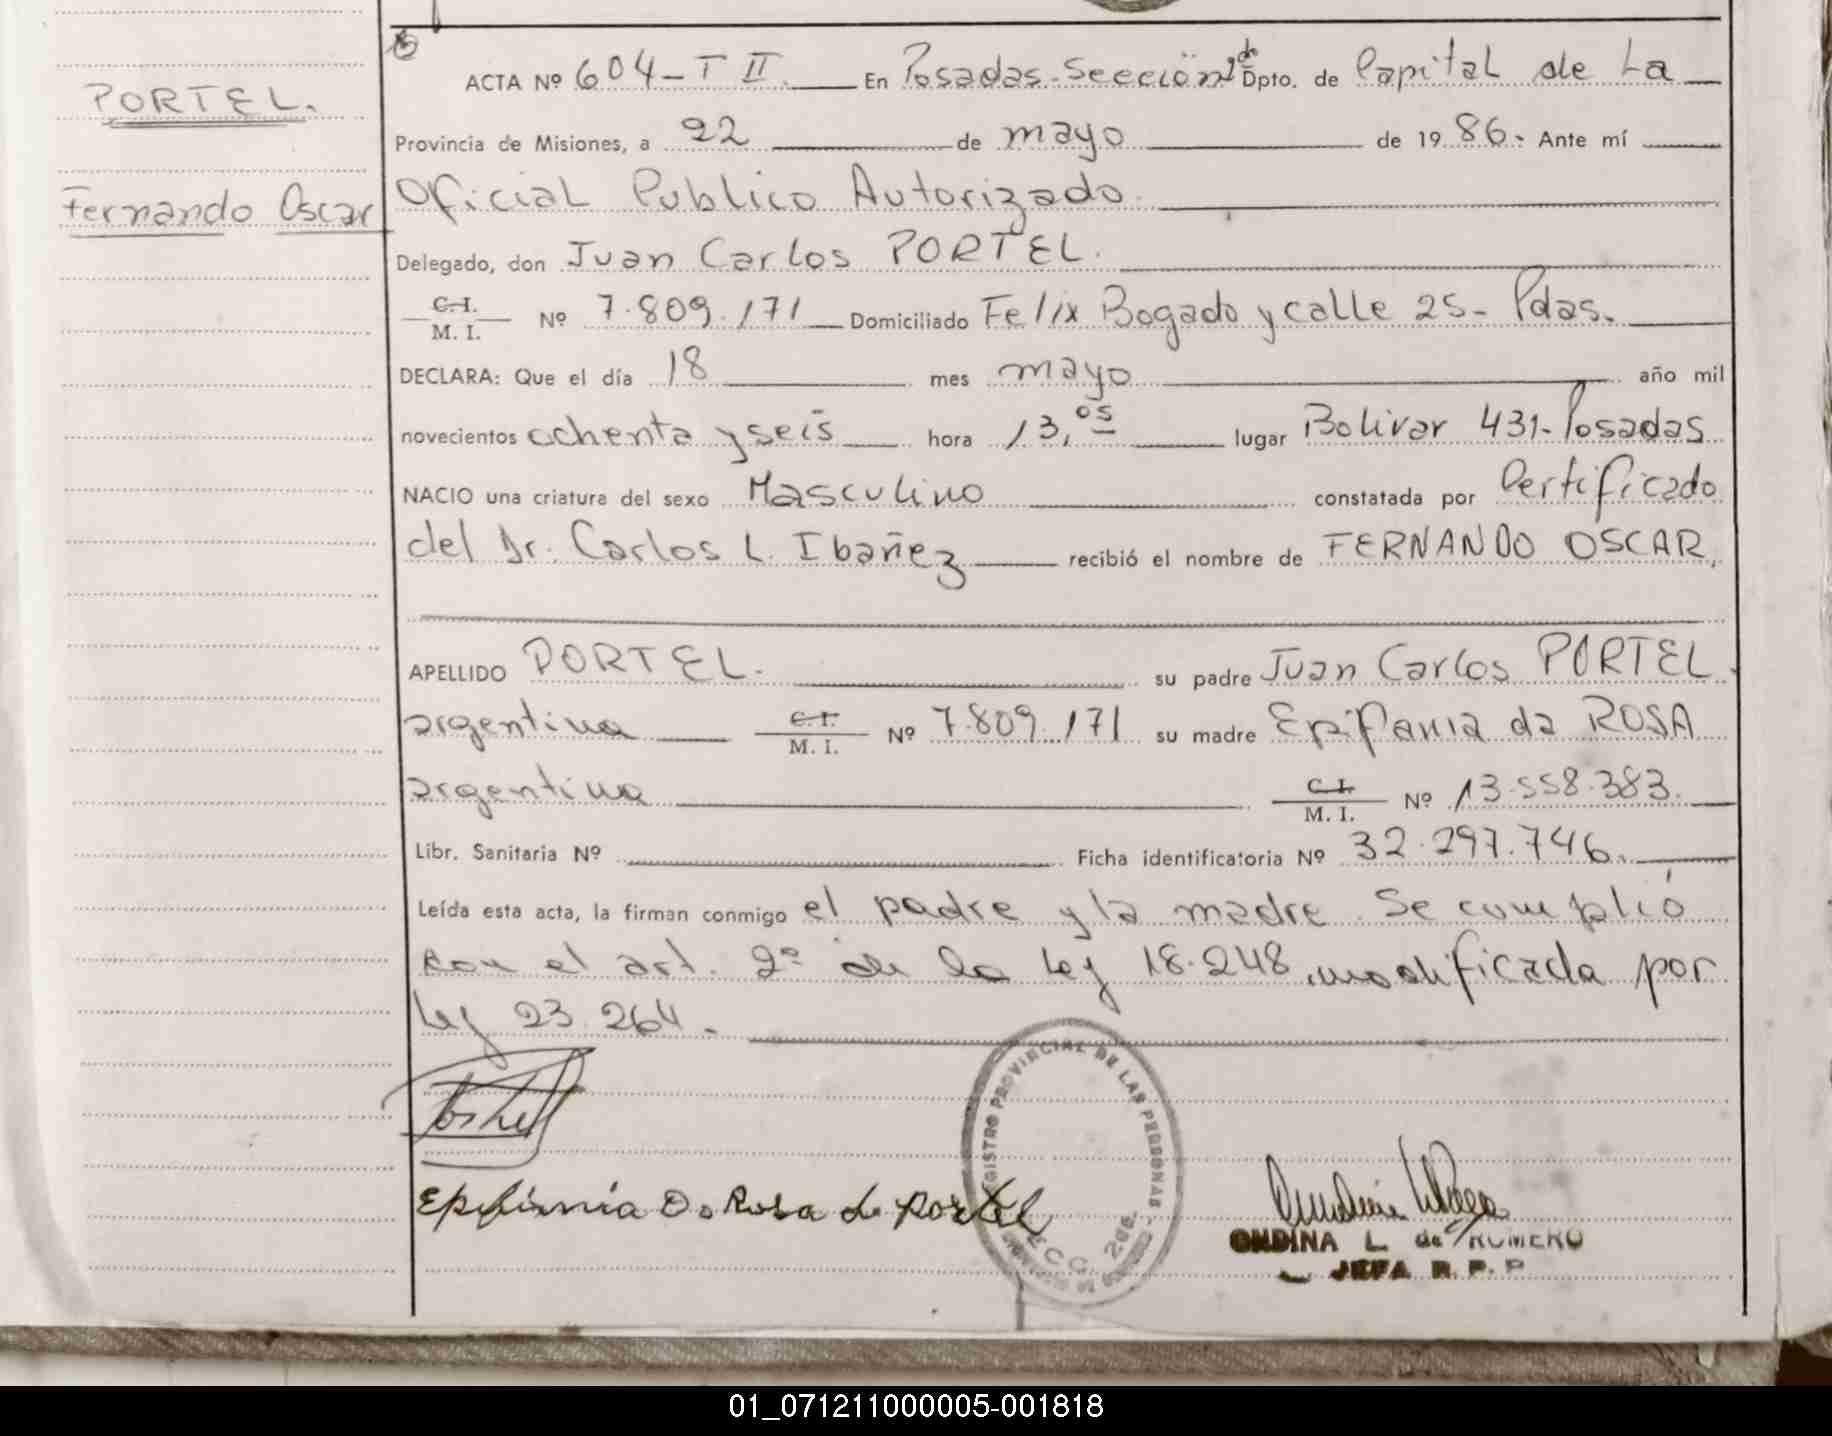 PORTEL.
Fernando Oscar
ACTA Nº 604 - T II. En Posadas - Sección 2da Dpto. de Capital de La
Provincia de Misiones, a 22 de mayo de 1986.- Ante mí
Oficial Publico Autorizado.
Delegado, don Juan Carlos PORTEL.
C.I. / M. I. Nº 7.809.171 Domiciliado Felix Bogado y calle 25 - Pdas.
DECLARA: Que el día 18 mes mayo año mil
novecientos ochenta y seis hora 13,05 lugar Bolivar 431 - Posadas
NACIO una criatura del sexo Masculino constatada por Certificado
del Dr. Carlos L. Ibañez recibió el nombre de FERNANDO OSCAR,
APELLIDO PORTEL. su padre Juan Carlos PORTEL.
argentina C.I. / M. I. Nº 7.809.171 su madre Epifania da ROSA
argentina C.I. / M. I. Nº 13.558.383.
Libr. Sanitaria Nº Ficha identificatoria Nº 32.297.746.
Leída esta acta, la firman conmigo el padre y la madre. Se cumplió
con el art. 2º de la ley 18.248, modificada por
ley 23.264.-
REGISTRO PROVINCIAL DE LAS PERSONAS
Portel
Epifania D. Rosa de Portel
ONDINA L. de ROMERO
JEFA R. P. P
01_071211000005-001818